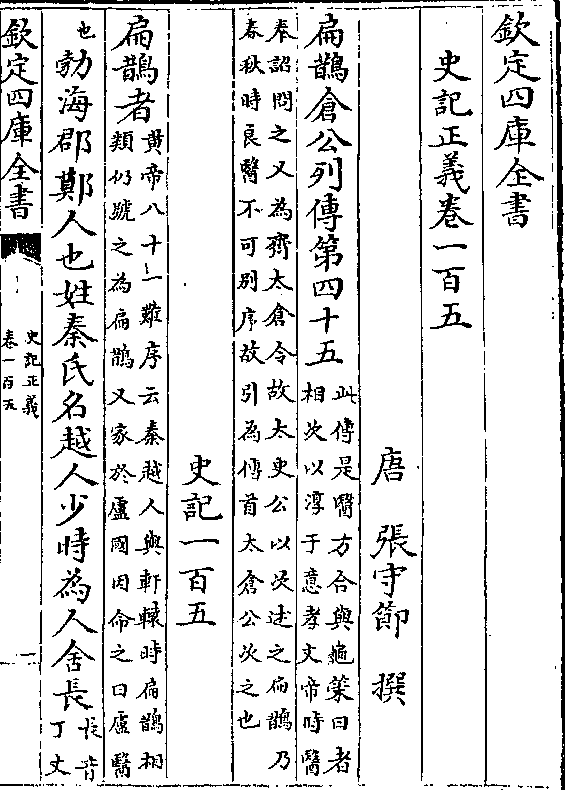 欽定四庫全書
史記正義卷一百五
唐 張守節 撰
扁鵲倉公列傳第四十五
此傳是醫方合與龜策日者
相次以淳于意孝文帝時醫
奉詔問之又為齊太倉令故太史公以次述之扁鵲乃
春秋時良醫不可别序故引為傳首太倉公次之也
史記一百五
扁鵲者
黄帝八十一難序云秦越人與軒轅時扁鵲相
類仍號之為扁鵲又家於盧國因命之曰盧醫
也
勃海郡鄭人也姓秦氏名越人少時為人舍長
長音
丁丈
欽定四庫全書
史記正義
卷一百五
一